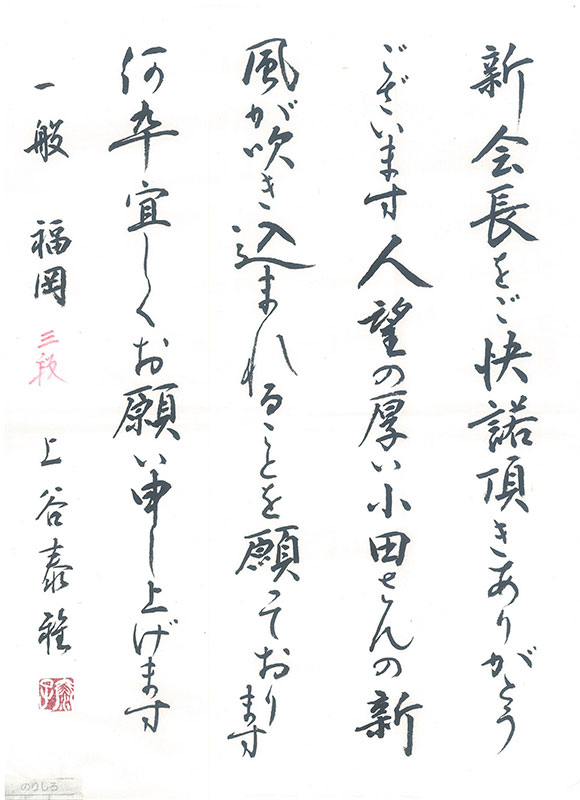 新会長をご快諾頂きありがとう
ございます人望の厚い小田さんの新
風が吹き込まれることを願っております
何卒宜しくお願い申し上げます
一般 福岡 三段 上谷泰雅
のりしろ